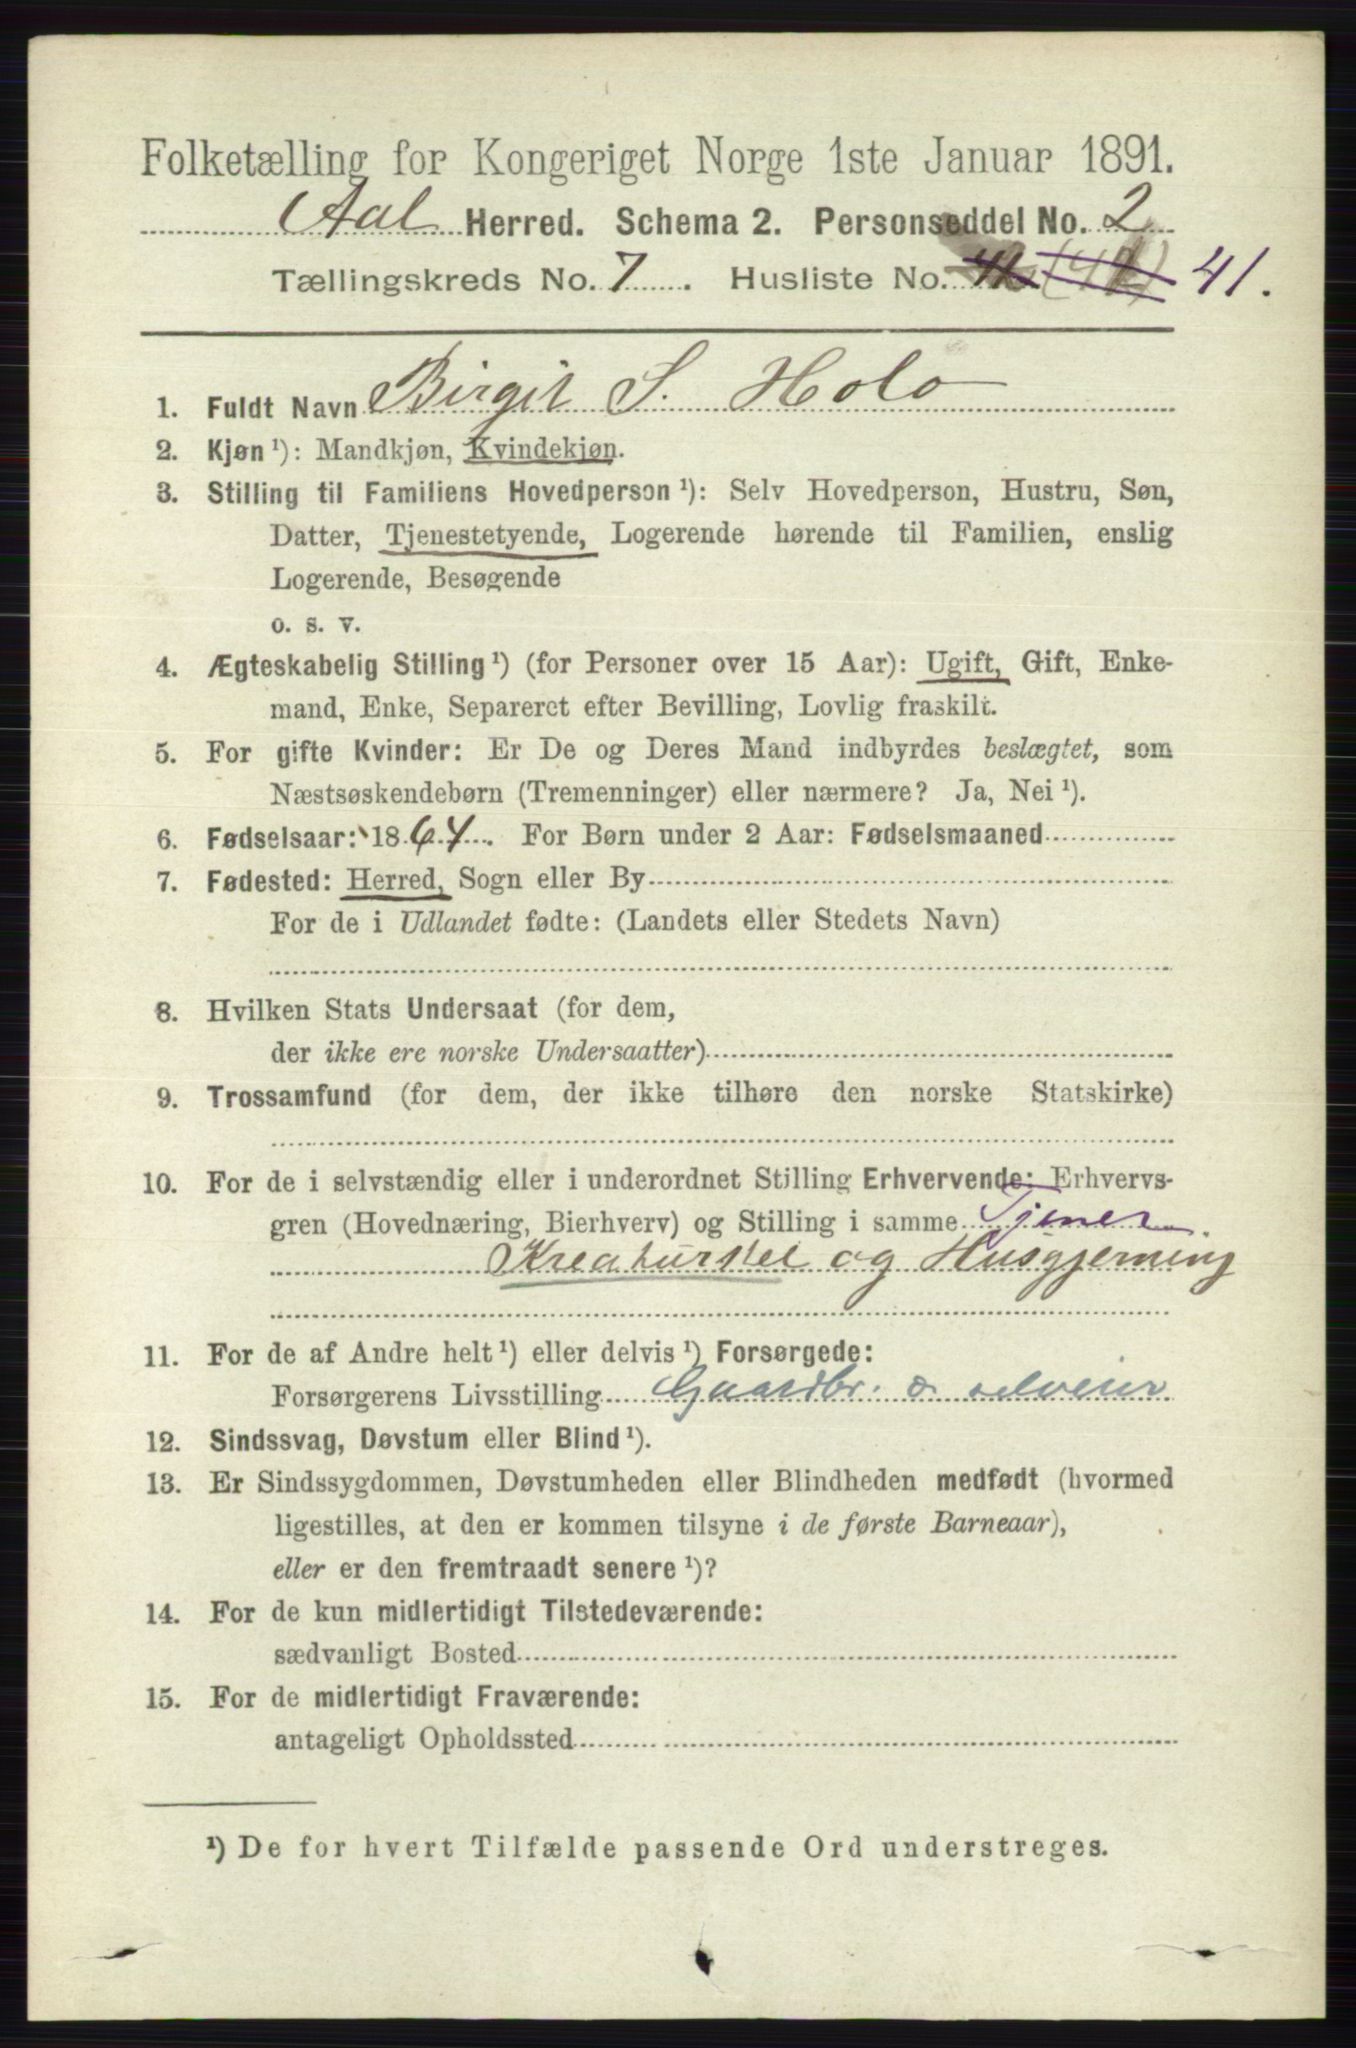 Folketælling for Kongeriget Norge 1ste Januar 1891.
Aal Herred. Schema 2. Personseddel No. 2
Tællingskreds No. 7 . Husliste No. 41.
1. Fuldt Navn Birgit S. Holo
2. Kjøn ¹): Mandkjøn, Kvindekjøn.
3. Stilling til Familiens Hovedperson ¹): Selv Hovedperson, Hustru, Søn,
Datter, Tjenestetyende, Logerende hørende til Familien, enslig
Logerende, Besøgende
o. s. v.
4. Ægteskabelig Stilling ¹) (for Personer over 15 Aar): Ugift, Gift, Enke-
mand, Enke, Separeret efter Bevilling, Lovlig fraskilt.
5. For gifte Kvinder: Er De og Deres Mand indbyrdes beslægtet, som
Næstsøskendebørn (Tremenninger) eller nærmere? Ja, Nei ¹).
6. Fødselsaar: 1864. For Børn under 2 Aar: Fødselsmaaned
7. Fødested: Herred, Sogn eller By
For de i Udlandet fødte: (Landets eller Stedets Navn)
8. Hvilken Stats Undersaat (for dem,
der ikke ere norske Undersaatter)
9. Trossamfund (for dem, der ikke tilhøre den norske Statskirke)
10. For de i selvstændig eller i underordnet Stilling Erhvervende: Erhvervs-
gren (Hovednæring, Bierhverv) og Stilling i samme Tjener
Kreaturstel og Husgjerning
11. For de af Andre helt ¹) eller delvis ¹) Forsørgede:
Forsørgerens Livsstilling Gaardbr. & selveier
12. Sindssvag, Døvstum eller Blind ¹).
13. Er Sindssygdommen, Døvstumheden eller Blindheden medfødt (hvormed
ligestilles, at den er kommen tilsyne i de første Barneaar),
eller er den fremtraadt senere ¹)?
14. For de kun midlertidigt Tilstedeværende:
sædvanligt Bosted
15. For de midlertidigt Fraværende:
antageligt Opholdssted
¹) De for hvert Tilfælde passende Ord understreges.